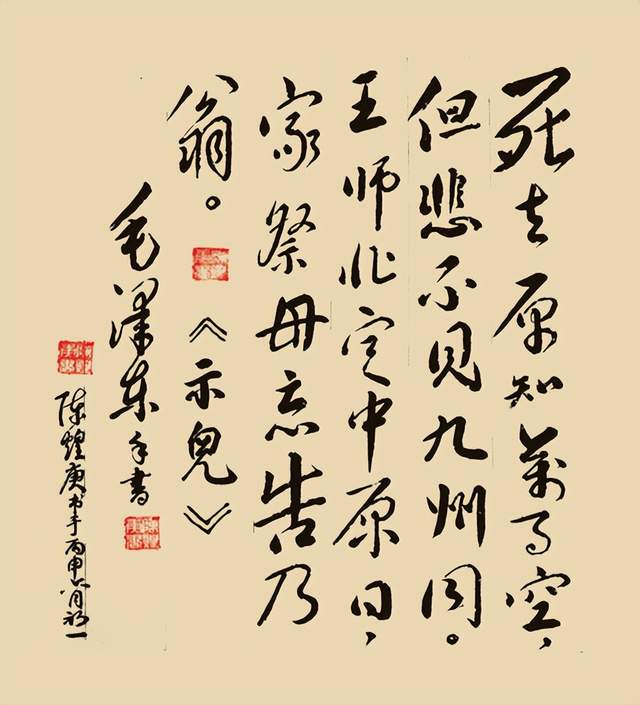 死去原知萬事空、
但悲不见九州同。
王师北定中原日、
家祭毋忘告乃
翁。《示兒》
毛澤東手書
陈煌庚书于丙申八月初一